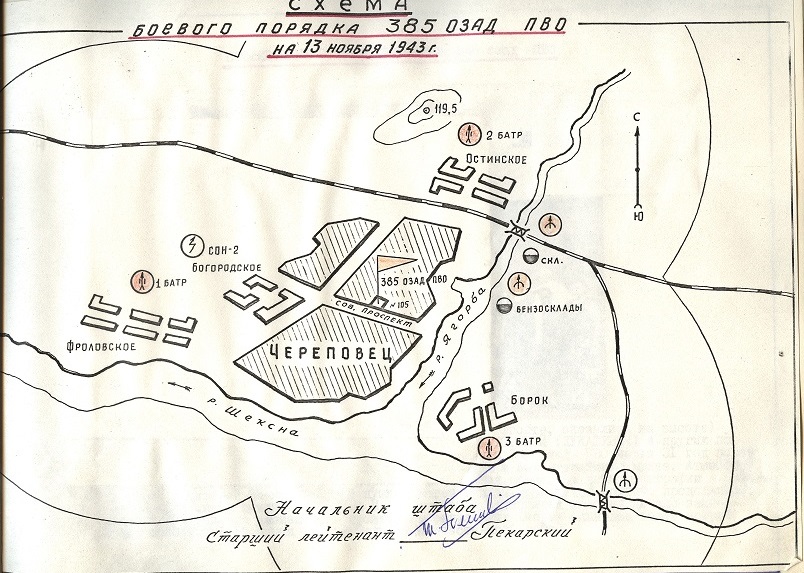 СХЕМА
БОЕВОГО ПОРЯДКА 385 ОЗАД ПВО
НА 13 НОЯБРЯ 1943 г.
119,5
2 БАТР
ОСТИНСКОЕ
С
Ю
СОН-2
БОГОРОДСКОЕ
1 БАТР
ФРОЛОВСКОЕ
385 ОЗАД ПВО
N 105
СОВ. ПРОСПЕКТ
ЧЕРЕПОВЕЦ
СКЛ.
БЕНЗОСКЛАДЫ
р. ЯГОРБА
р. Шексна
БОРОК
3 БАТР
Начальник штаба
Старший лейтенант Пекарский